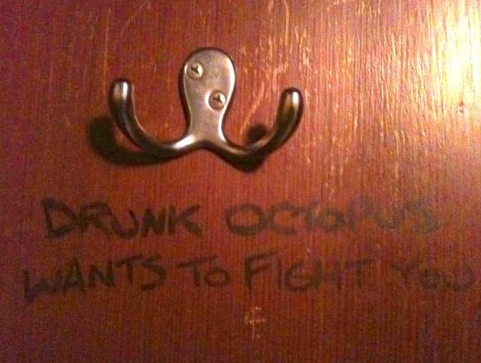 DRUNK OCTOPUS
WANTS TO FIGHT YOU